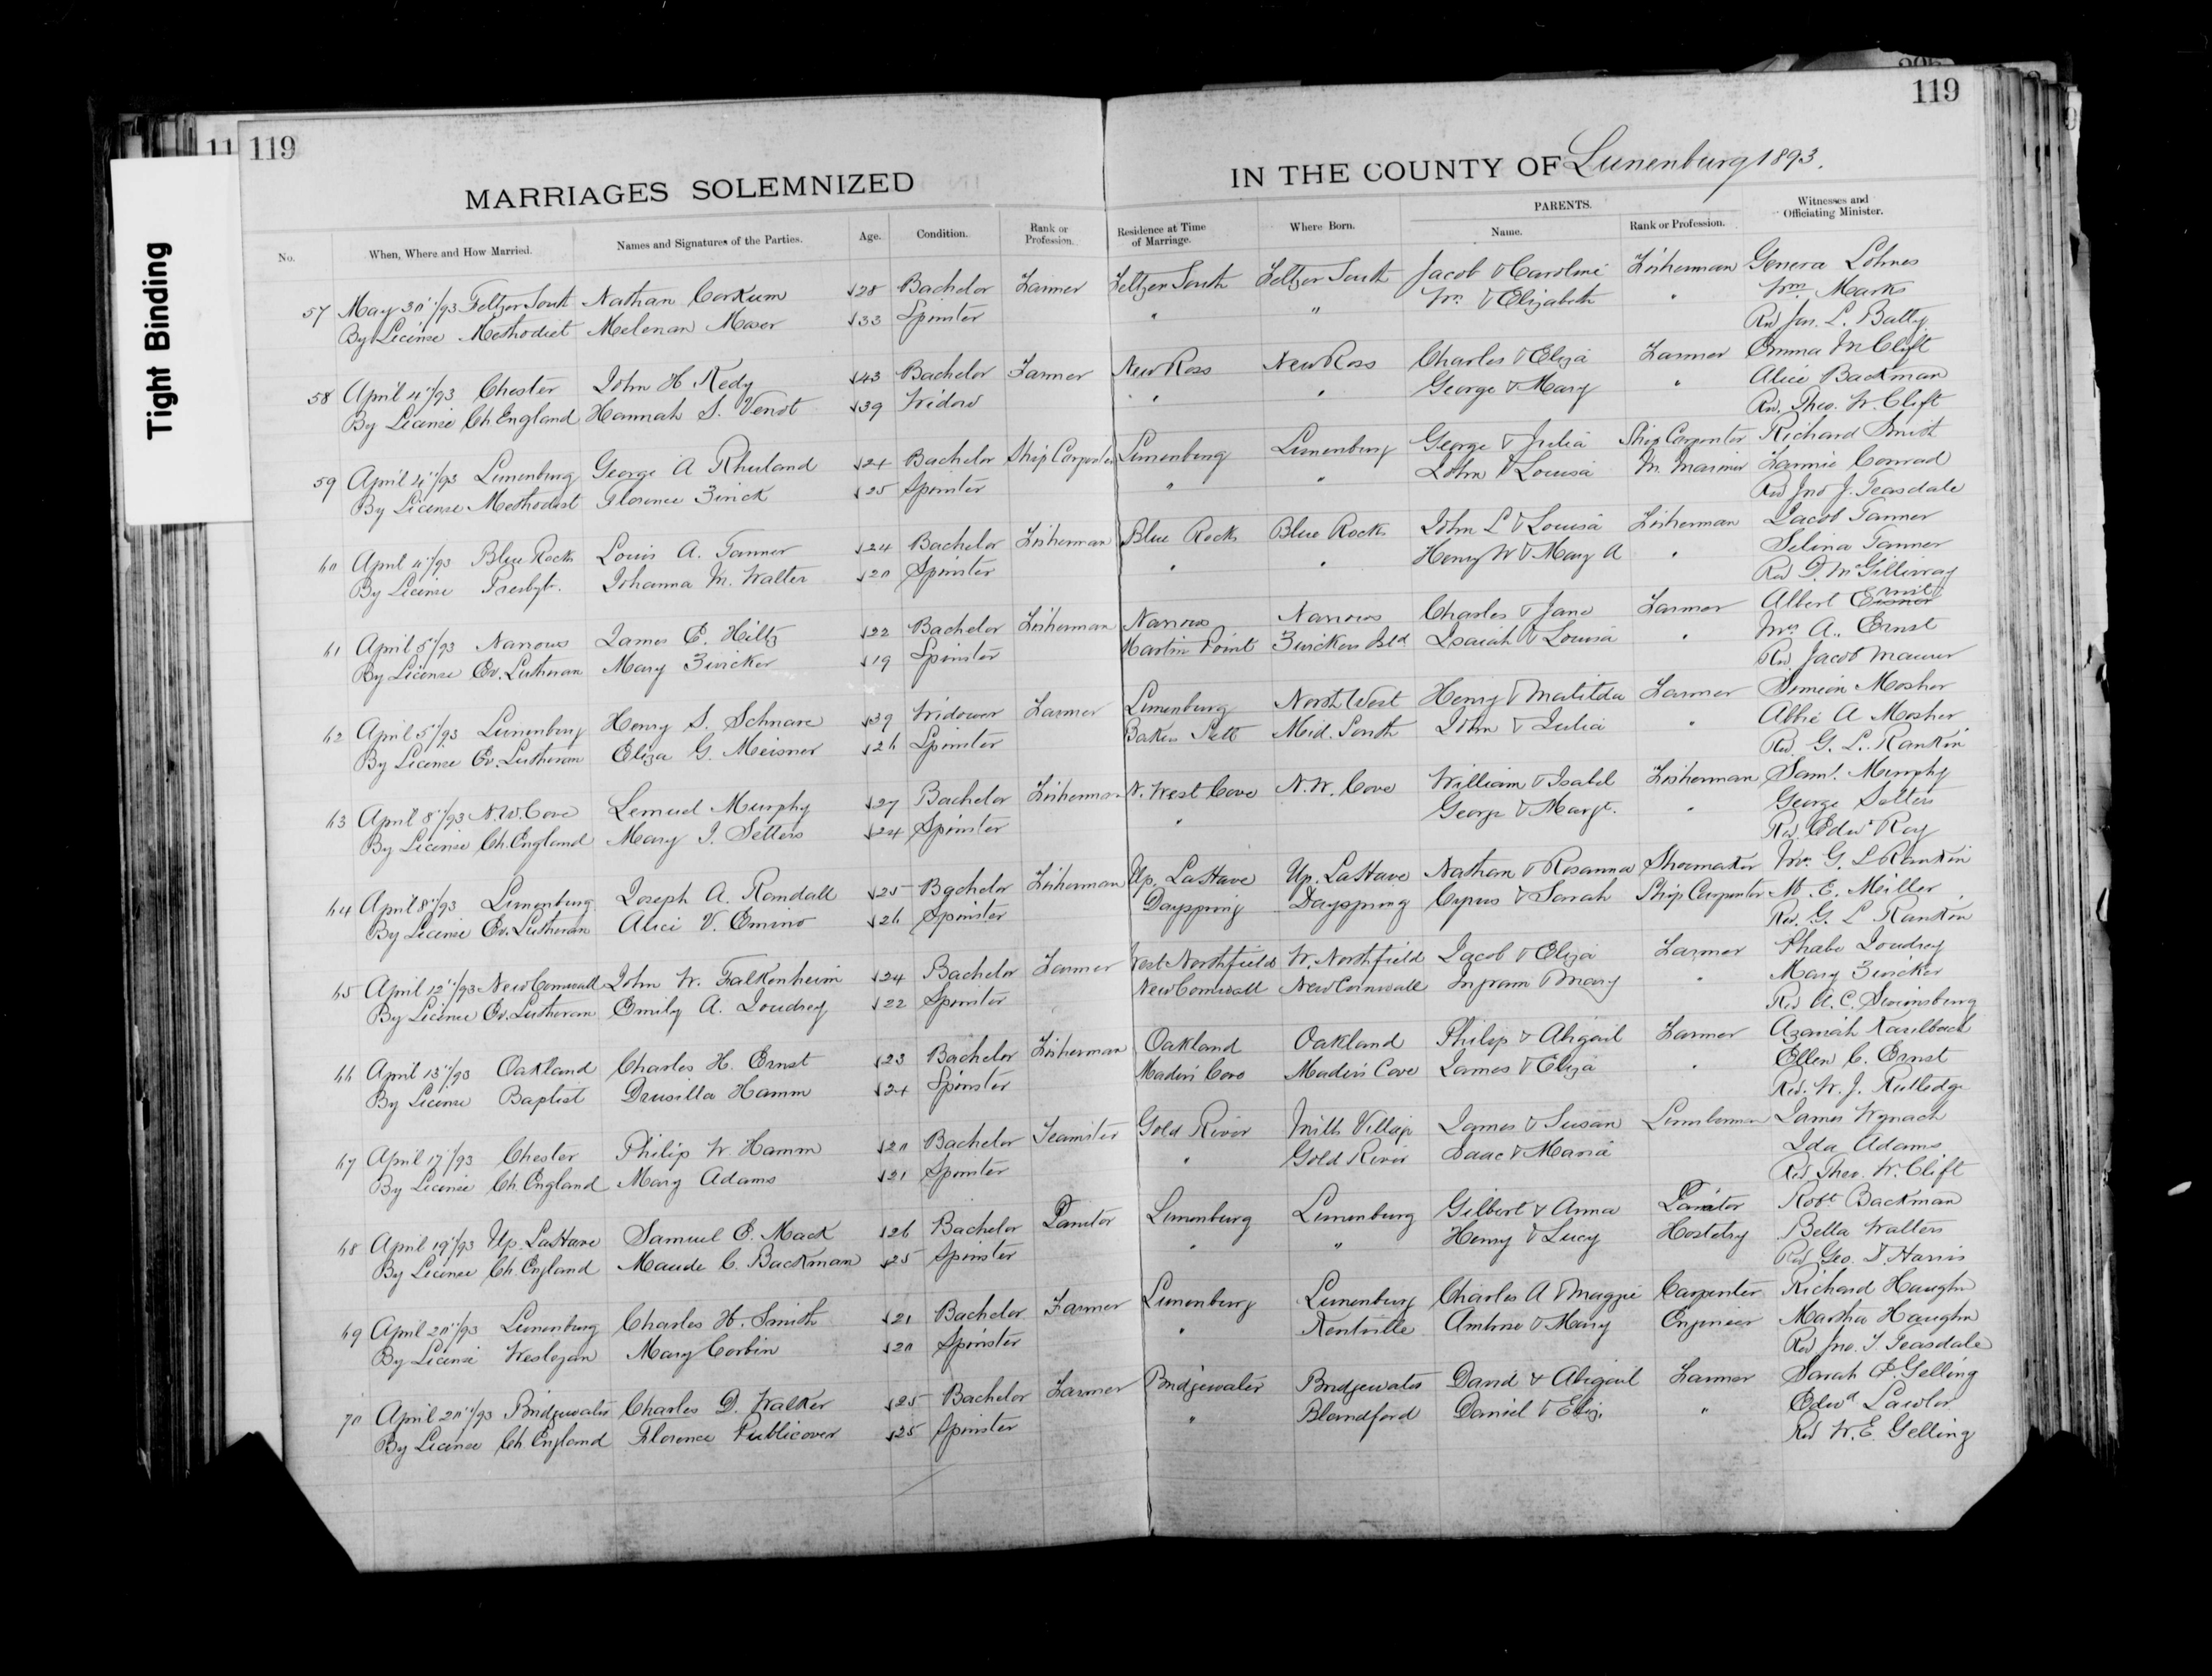 Tight Binding
119
119
MARRIAGES SOLEMNIZED IN THE COUNTY OF Lunenburg 1893.
No. When, Where and How Married. Names and Signatures of the Parties. Age. Condition. Rank or Profession. Residence at Time of Marriage. Where Born. PARENTS. Name. Rank or Profession. Witnesses and Officiating Minister.
57 May 30"/93 Feltzer South Nathan Corkum 28 Bachelor Farmer Feltzen South Feltzer South Jacob & Caroline Fisherman Geneva Lohnes
By License Methodist Melenan Moser 33 Spinster " " Wm & Elizabeth " Wm Marks
Rev Jas. L. Batty
58 April 4"/93 Chester John H Redy 43 Bachelor Farmer New Ross New Ross Charles & Eliza Farmer Emma M Clift
By License Ch England Hannah S. Venot 39 Widow " " George & Mary " Alice Backman
Rev. Theo. W. Clift
59 April 4"/93 Lunenburg George A Rhuland 24 Bachelor Ship Carpenter Lunenburg Lunenburg George & Julia Ship Carpenter Richard Smith
By License Methodist Florence Zwick 25 Spinster " " John & Louisa M. Mariner Fannie Conrad
Rev Jno J. Teasdale
60 April 4"/93 Blue Rocks Louis A. Tanner 24 Bachelor Fisherman Blue Rocks Blue Rocks John L & Louisa Fisherman Jacob Tanner
By License Presbyt. Johanna M. Walter 20 Spinster " " Henry W & Mary A " Selina Tanner
Rev D. McGillivray
61 April 5"/93 Narrows James E. Hiltz 22 Bachelor Fisherman Narrows Narrows Charles & Jane Farmer Albert
By License Ev. Lutheran Mary Zwicker 19 Spinster Martin Point Zwickers Isld Isaiah & Louisa " Mrs A. Ernst
Rev. Jacob Maurer
62 April 5"/93 Lunenburg Henry S. Schnare 39 Widower Farmer Lunenburg North West Henry & Matilda Farmer Simeon Mosher
By License Ev. Lutheran Eliza G. Meisner 26 Spinster Bakers Sett Mid. South John & Julia " Abbie A Mosher
Rev. G. L. Rankin
63 April 8"/93 N.W. Cove Lemuel Murphy 27 Bachelor Fisherman N. West Cove N.W. Cove William & Isabel Fisherman Saml. Murphy
By License Ch. England Mary J. Setters 24 Spinster " George & Margt. " George Setters
Rev. Edwd Roy
64 April 8"/93 Lunenburg Joseph A. Randall 25 Bachelor Fisherman Up. LaHave Up. LaHave Nathan & Rosanna Shoemaker Mrs G. L Rankin
By License Ev. Lutheran Alice V. Emino 26 Spinster Dayspring Dayspring Cyrus & Sarah Ship Carpenter M. E. Miller
Rev. G. L Rankin
65 April 12"/93 New Cornwall John W. Falkenheim 24 Bachelor Farmer West Northfield W. Northfield Jacob & Eliza Farmer Phabe Joudrey
By License Ev. Lutheran Emily A. Joudrey 22 Spinster New Cornwall New Cornwall Ingram & Mary " Mary Zwicker
Rev A.C. Swinsburg
66 April 13"/93 Oakland Charles H. Ernst 23 Bachelor Fisherman Oakland Oakland Philip & Abigail Farmer Azariah Kaulback
By License Baptist Drusilla Hamm 24 Spinster Maders Cove Maders Cove James & Eliza " Ellen C. Ernst
Rev. W. J. Rutledge
67 April 17"/93 Chester Philip W. Hamm 20 Bachelor Teamster Gold River Mill Village James & Susan Lumberman James Wynach
By License Ch England Mary Adams 21 Spinster " Gold River Isaac & Maria Ida Adams
Rev Theo. W. Clift
68 April 19"/93 Up. LaHave Samuel E. Mack 26 Bachelor Janitor Lunenburg Lunenburg Gilbert & Anna Janitor Robt Backman
By License Ch. England Maude C. Backman 25 Spinster " " Henry & Lucy Hostelry Bella Walters
Rev Geo. D. Harris
69 April 20"/93 Lunenburg Charles H. Smith 21 Bachelor Farmer Lunenburg Lunenburg Charles A & Maggie Carpenter Richard Haughn
By License Wesleyan Mary Corbin 20 Spinster " Kentville Ambrose & Mary Engineer Martha Haughn
Rev Jno. J. Teasdale
70 April 20"/93 Bridgewater Charles D. Walker 25 Bachelor Farmer Bridgewater Bridgewater David & Abigail Farmer Sarah E. Gelling
By License Ch. England Florence Publicover 25 Spinster " Blandford Daniel & Eliz. " Edwd Lawlor
Rev W. E. Gelling